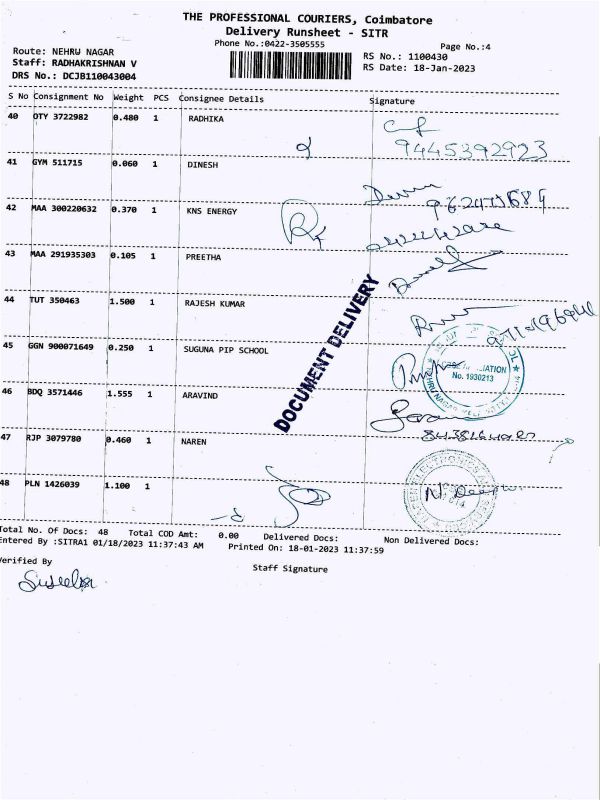 THE PROFESSIONAL COURIERS, Coimbatore
Delivery Runsheet - SITR
Phone No.:0422-3505555
Page No.:4
Route: NEHRU NAGAR
RS No.: 1100430
Staff: RADHAKRISHNAN V
RS Date: 18-Jan-2023
DRS No.: DCJB110043004
S No Consignment No Weight PCS Consignee Details Signature
40 OTY 3722982 0.480 1 RADHIKA
9445392923
41 GYM 511715 0.060 1 DINESH
42 MAA 300220632 0.370 1 KNS ENERGY
43 MAA 291935303 0.105 1 PREETHA
44 TUT 350463 1.500 1 RAJESH KUMAR
DOCUMENT DELIVERY
45 GGN 900071649 0.250 1 SUGUNA PIP SCHOOL
No. 1930213
46 BDQ 3571446 1.555 1 ARAVIND
47 RJP 3079780 0.460 1 NAREN
48 PLN 1426039 1.100 1
Total No. Of Docs: 48 Total COD Amt: 0.00 Delivered Docs: Non Delivered Docs:
Entered By :SITRA1 01/18/2023 11:37:43 AM Printed On: 18-01-2023 11:37:59
Verified By
Staff Signature